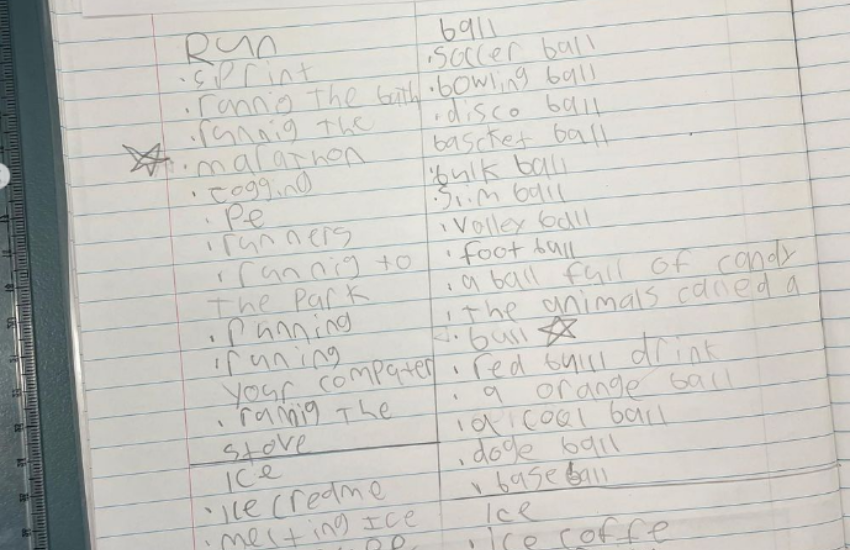 Run
·sprint
·rannig the bath
·rannig the
·marathon
·cogging
·Pe
·runners
·rannig to
the park
·running
·runing
your compater
·rannig the
stove
ice
·ice creame
·melting Ice
ball
·soccer ball
·bowling ball
·disco ball
bascket ball
·bulk ball
·Slim ball
·Volley ball
·foot ball
·a ball full of candy
·the animals called a
·bull
·red bull drink
·a orange ball
·a cool ball
·doge ball
·baseball
ice
·ice coffe